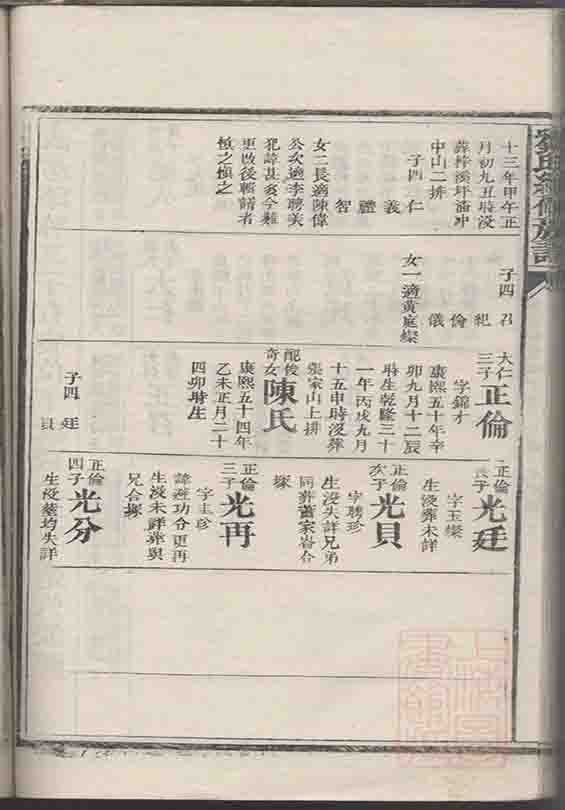 十三年甲午正
月初九丑時沒
葬梓溪圩畓冲
中山二排
子四 仁
義
禮
智
女二長適陳偉
公次適李聘美
犯諱甚多今難
更改後輯譜者
慎之慎之
子四 召
紀
倫
儀
女一適黃庭燦
大仁三子 正倫
字錦才
康熙五十年辛
卯九月十二辰
時生乾隆三十
一年丙戌九月
十五申時沒葬
張家山上排
配俊奇女 陳氏
康熙五十四年
乙未正月二十
四卯時生
子四 廷
貝
正倫長子 光廷
字玉燦
生沒葬未詳
正倫次子 光貝
字聘珍
生沒失詳兄弟
同葬蕭家畬合
塚
正倫三子 光再
字上珍
諱避功分更再
生沒未詳葬與
兄合塚
正倫四子 光分
生沒墓均失詳